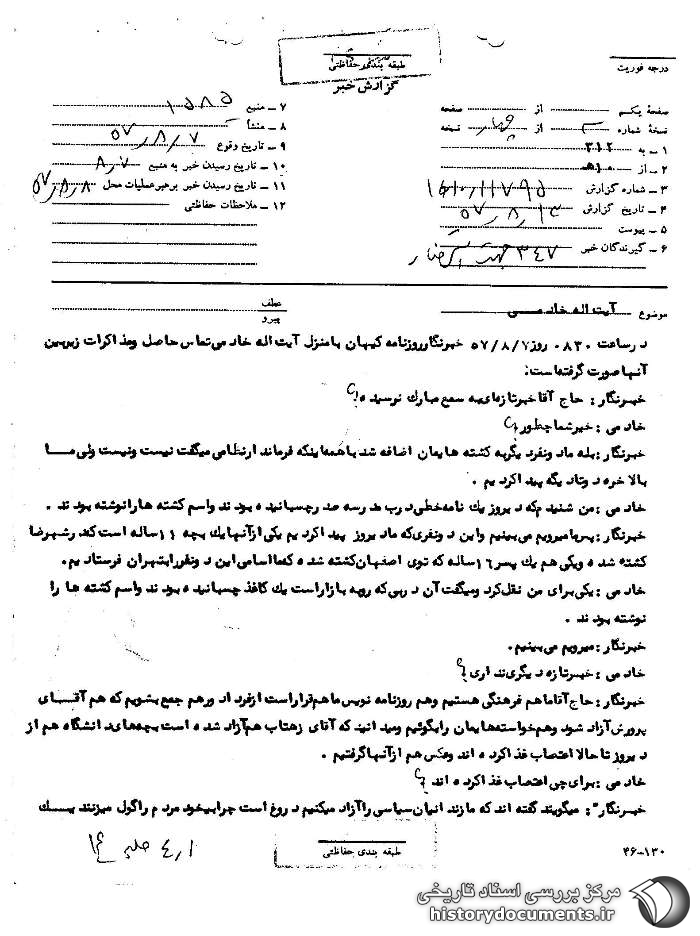 طبقه بندی حفاظتی
گزارش خبر
درجه فوریت
صفحهٔ یکم از صفحه
نسخهٔ شماره ۳ از چهار نسخه
۱ ـ به ۳۱۲
۲ ـ از ۱۰ه‍
۳ ـ شماره گزارش
۴ ـ تاریخ گزارش ۵۷/۸/۱۳
۵ ـ پیوست
۶ ـ گیرندگان خبر ۳۴۷
۷ ـ منبع ۱۵۸۵
۸ ـ منشأ
۹ ـ تاریخ وقوع ۵۷/۸/۷
۱۰ ـ تاریخ رسیدن خبر به منبع ۸/۷
۱۱ ـ تاریخ رسیدن خبر برهبرعملیات محل ۵۷/۸/۸
۱۲ ـ ملاحظات حفاظتی
موضوع آیت اله خادمی
عطف
پیرو
درساعت ۰۸۳۰ روز ۵۷/۸/۷ خبرنگارروزنامه کیهان بامنزل آیت اله خادمی تماس حاصل ومذاکرات زیربین
آنهاصورت گرفته است:
خبرنگار: حاج آقاخبرتازه ای به سمع مبارك نرسیده؟
خادمی: خیرشماچطور؟
خبرنگار: بله مادونفردیگربه کشته هایمان اضافه شد باهمه اینکه فرماندارنظامی میگفت نیست ونیست ولی مــا
بالاخره دوتادیگه پیداکردیم.
خادمی: من شنیدم که دیروز یك نامه خطی درب مدرسه صدرچسبانیده بودند واسم کشته هارانوشته بودند.
خبرنگار: پس مامیرویم می بینیم واین دونفری که مادیروز پیداکردیم یکی ازآنهایك بچه ۱۱ساله است که درشهرضا
کشته شده ویکی هم یك پسر۱۶ساله که توی اصفهان کشته شده که مااسامی این دونفررابتهران فرستادیم.
خادمی: یکی برای من نقل کرد ومیگفت آن دربی که روبه بازاراست یك کاغذ چسبانیده بودند واسم کشته ها را
نوشته بودند.
خبرنگار: میرویم می بینیم.
خادمی: خبرتازه دیگری نداری؟
خبرنگار: حاج آقاماهم فرهنگی هستیم وهم روزنامه نویس ماهم قراراست ازفردا دورهم جمع بشویم که هم آقــای
پرورش آزاد شود وهم خواسته هایمان رابگوئیم ومیدانید که آقای زهتاب هم آزاد شده است بچه های دانشگاه هم از
دیروزتاحالا اعتصاب غذاکرده اند وعکس هم ازآنهاگرفتیم.
خادمی: برای چی اعتصاب غذاکرده اند؟
خبرنگار: میگویند گفته اند که مازندانیان سیاسی راآزاد میکنیم دروغ است چرابیخود مردم راگول میزنند بیســك
طبقه بندی حفاظتی
۴۶-۱۳۰
مرکز بررسی اسناد تاریخی
historydocuments.ir